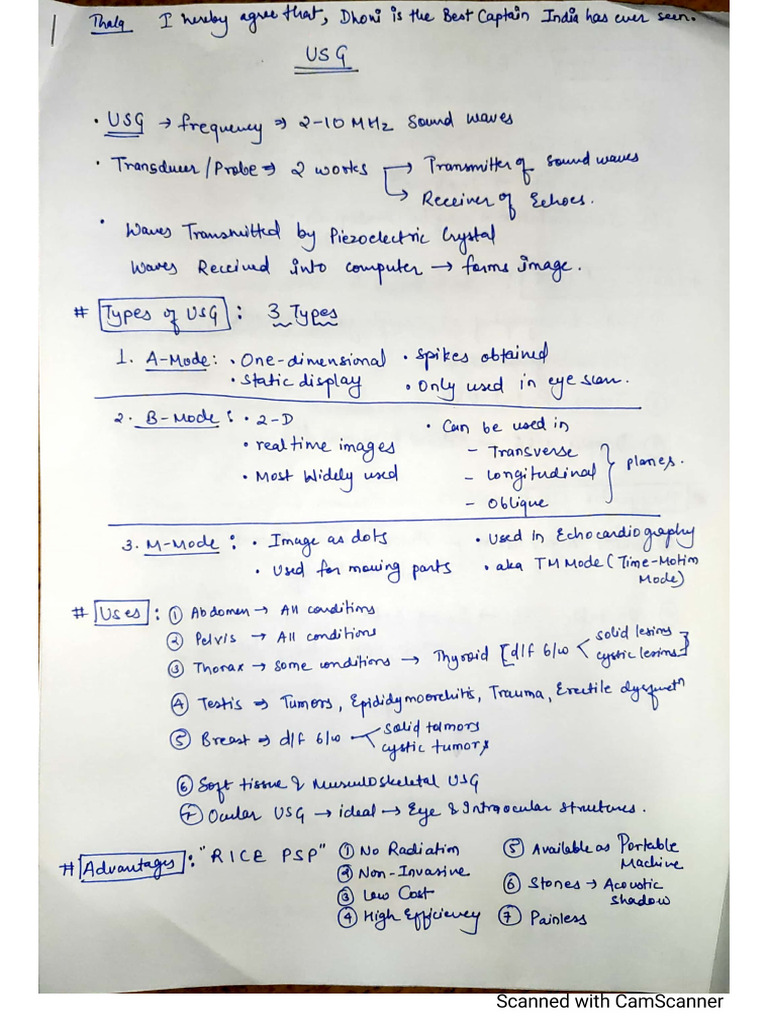 Thala I hereby agree that, Dhoni is the Best Captain India has ever seen.
USG
• USG → frequency ⇒ 2-10 MHz sound waves
• Transducer/Probe ⇒ 2 works → Transmitter of sound waves
→ Receiver of Echoes.
• Waves Transmitted by Piezoelectric Crystal
Waves Received into computer → forms image.
# Types of USG : 3 Types
1. A-Mode : • One-dimensional • Spikes obtained
• static display • Only used in eye scan.
2. B-Mode : • 2-D • Can be used in
• real time images - Transverse
• Most Widely used - Longitudinal } planes.
- Oblique
3. M-Mode : • Image as dots • Used in Echocardiography
• Used for moving parts • aka TM Mode (Time-Motion
Mode)
# Uses : ① Abdomen → All conditions
② Pelvis → All conditions
③ Thorax → some conditions → Thyroid [d/f b/w < solid lesions
cystic lesions]
④ Testis ⇒ Tumors, Epididymoorchitis, Trauma, Erectile dysfunctn
⑤ Breast ⇒ d/f b/w < solid tumors
cystic tumors
⑥ Soft tissue & Musculoskeletal USG
⑦ Ocular USG → ideal → Eye & Intraocular structures.
# Advantages : "RICE PSP" ① No Radiation ⑤ Available as Portable
Machine
② Non-Invasive
③ Low Cost ⑥ Stones → Acoustic
shadow
④ High Efficiency ⑦ Painless
Scanned with CamScanner